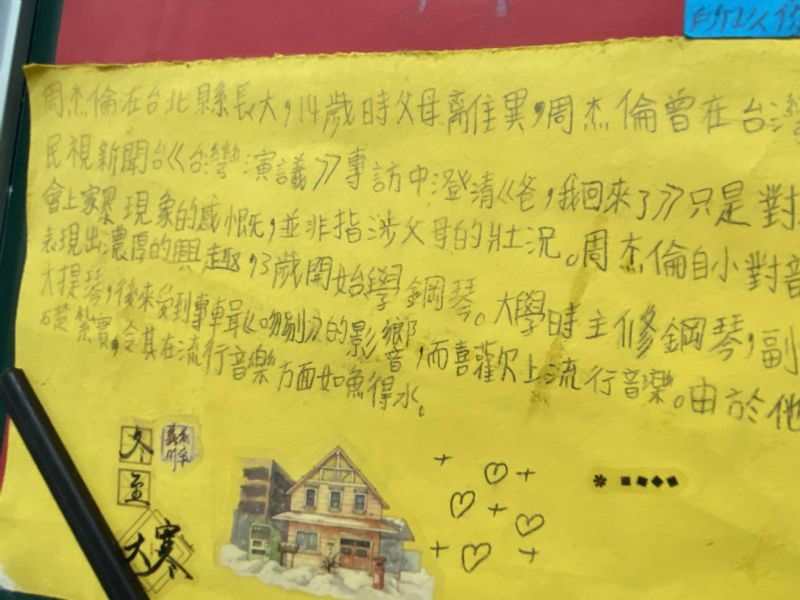 所以
周杰倫在台北縣長大，14歲時父母離住異，周杰倫曾在台灣
民視新聞台《台灣演議》專訪中澄清《爸，我回來了》只是對
會上家暴現象的感慨，並非指涉父母的壯況。周杰倫自小對音
表現出濃厚的興趣，3歲開始學鋼琴。大學時主修鋼琴，副
大提琴，後來受到專輯《吻別》的影響，而喜歡上流行音樂。由於他
礎紮實，令其在流行音樂方面如魚得水。
冬
至
大寒